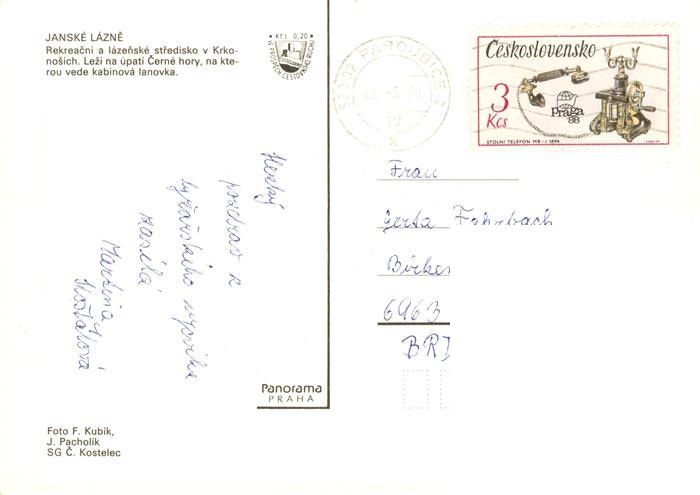 JANSKÉ LÁZNĚ
Rekreační a lázeňské středisko v Krko-
noších. Leží na úpatí Černé hory, na kte-
rou vede kabinová lanovka.
Kčs 0,20
VE PROSPĚCH CESTOVNÍHO RUCHU
PARDUBICE 2
Československo
3
Kčs
praga
88
STOLNÍ TELEFON MB - r. 1894
Hezký
pozdrav z
lyžařského výcviku
zasílá
Martina
Košťálová
Frau
Gerta Fahrbach
Birken
6963
BRD
Panorama
PRAHA
Foto F. Kubík,
J. Pacholík
SG Č. Kostelec